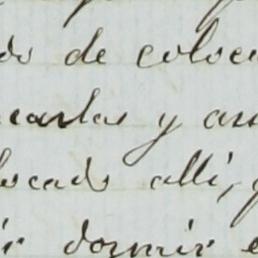 do de coloca
carlas y as
locado allí,
ir dormir e